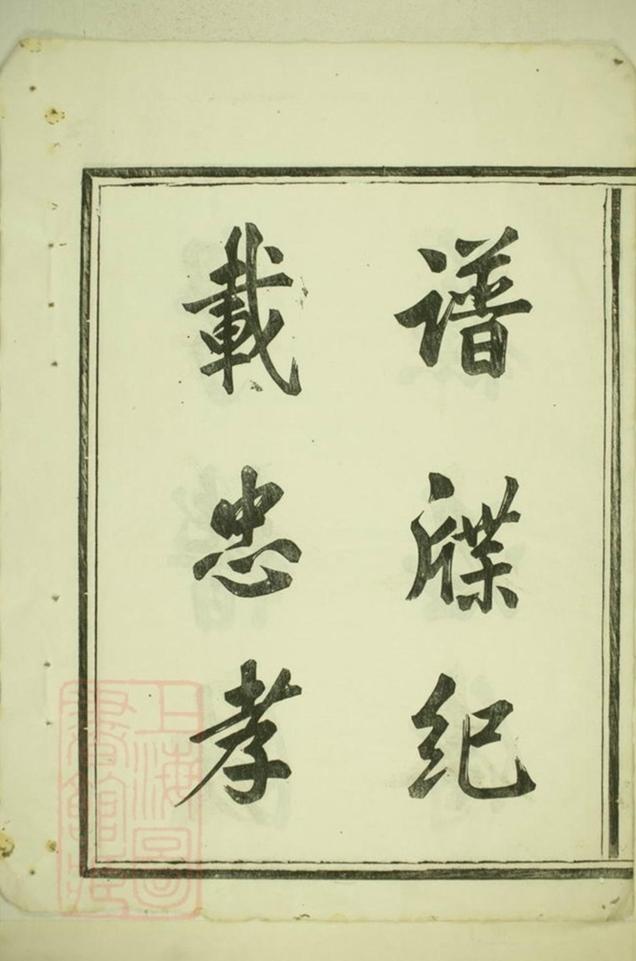 譜牒紀
載忠孝
上海圖
書館藏